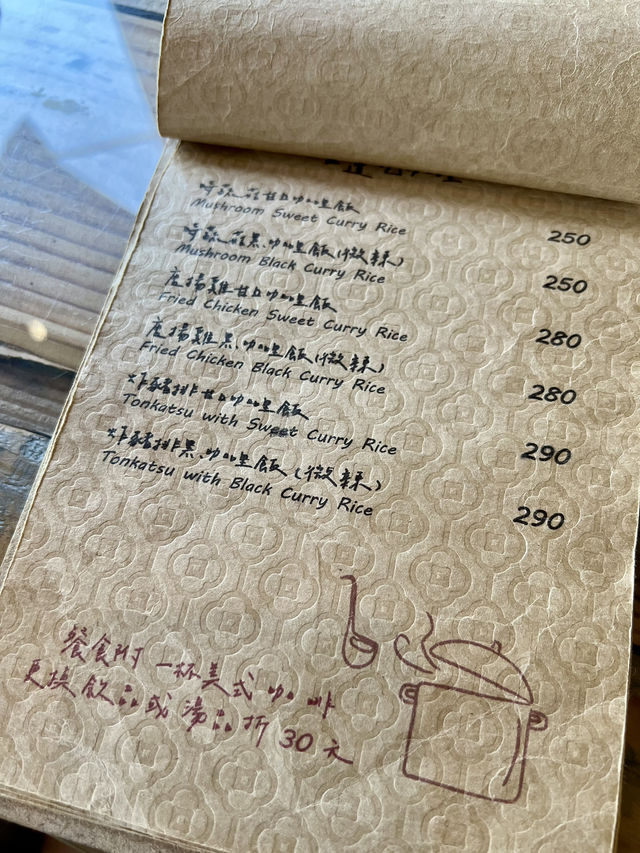 時蔬菇甘口咖哩飯
Mushroom Sweet Curry Rice 250
時蔬菇黑咖哩飯(微辣)
Mushroom Black Curry Rice 250
唐揚雞甘口咖哩飯
Fried Chicken Sweet Curry Rice 280
唐揚雞黑咖哩飯(微辣)
Fried Chicken Black Curry Rice 280
炸豬排甘口咖哩飯
Tonkatsu with Sweet Curry Rice 290
炸豬排黑咖哩飯(微辣)
Tonkatsu with Black Curry Rice 290
餐食附一杯美式咖啡
更換飲品或湯品折30元